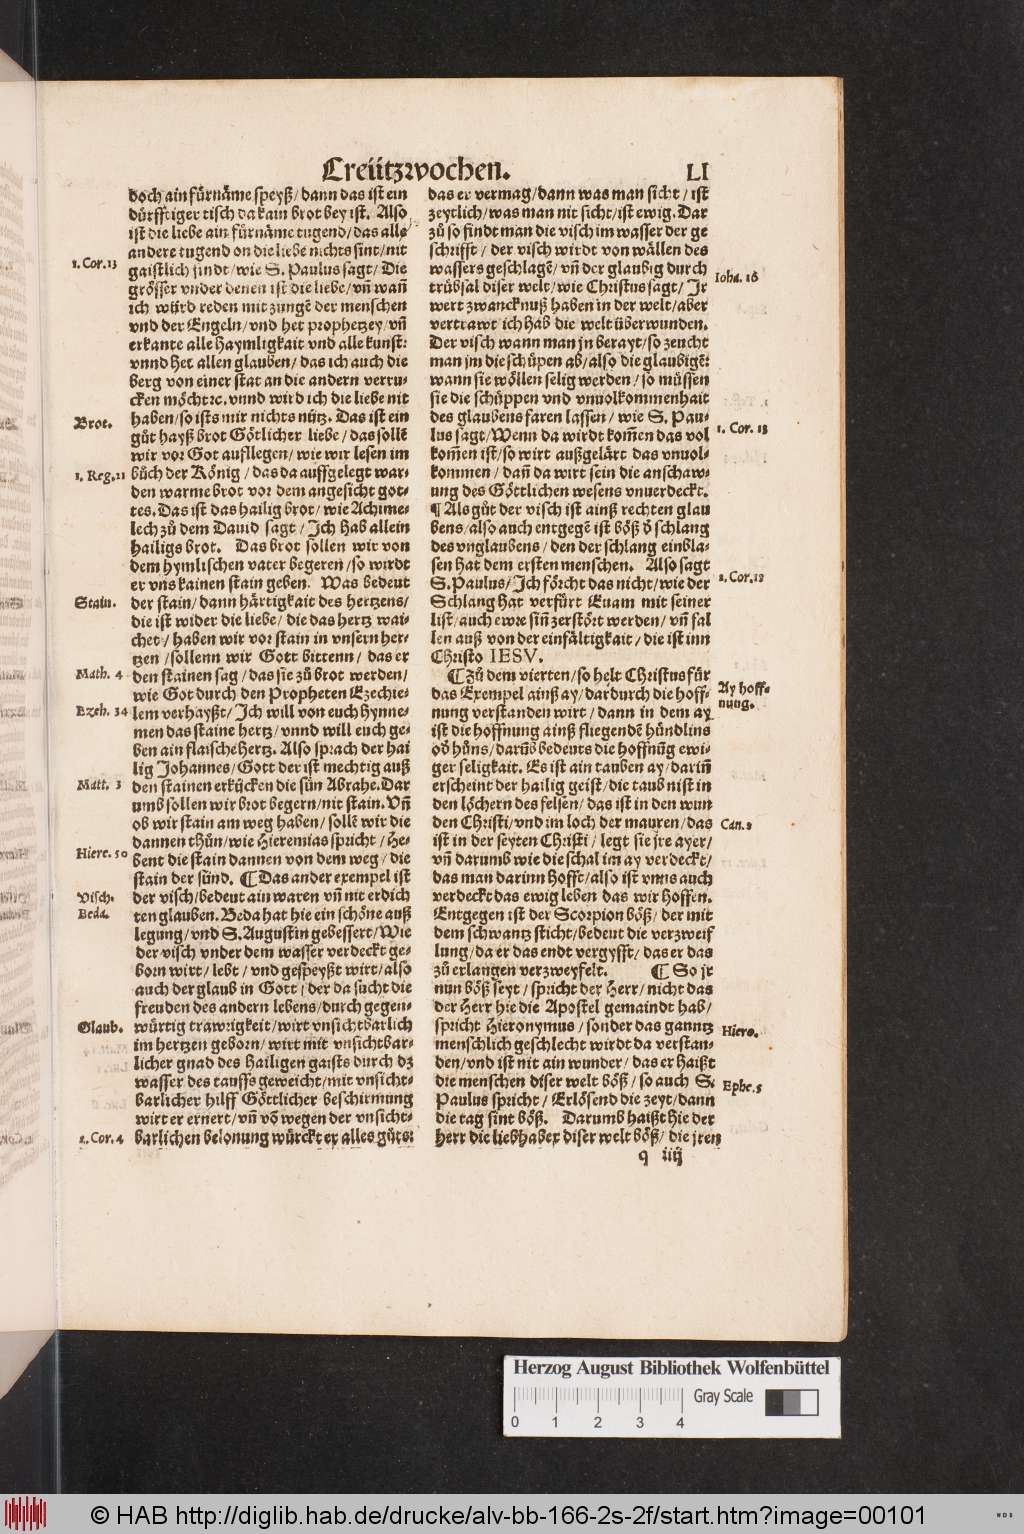 Creützwochen. LI
doch ain fürnäme speyß/ dann das ist ein
dürfftiger tisch da kain brot bey ist. Also
ist die liebe ain fürnäme tugend/ das alle
andere tugend on die liebe nichts sint/ nit
1. Cor. 13
gaistlich sindt/ wie S. Paulus sagt/ Die
grösser vnder denen ist die liebe/ vñ wañ
ich würd reden mit zungē der menschen
vnd der Engeln/ vnd het prophetzey/ vñ
erkante alle haymligkait vnd alle kunst:
vnnd het allen glauben/ das ich auch die
berg von einer stat an die andern verru-
cken möcht ꝛc. vnnd wird ich die liebe nit
Brot.
haben/ so ists mir nichts nütz. Das ist ein
gůt hayß brot Götlicher liebe/ das sollē
wir vor Got auffllegen/ wie wir lesen im
1. Reg. 21
bůch der König/ das da auffgelegt war-
den warme brot vor dem angesicht got-
tes. Das ist das hailig brot/ wie Achime-
lech zů dem Dauid sagt/ Ich hab allein
hailigs brot. Das brot sollen wir von
dem hymlischen vater begeren/ so wirdt
er vns kainen stain geben. Was bedeut
Stain.
der stain/ dann härtigkait des hertzens/
die ist wider die liebe/ die das hertz wai-
chet/ haben wir vor stain in vnsern her-
tzen/ sollenn wir Gott bittenn/ das er
Math. 4
den stainen sag/ das sie zů brot werden/
wie Got durch den Propheten Ezechie-
Ezeh. 34
lem verhayßt/ Ich will von euch hynne-
men das staine hertz/ vnnd will euch ge-
ben ain flaische hertz. Also sprach der hai
lig Johannes/ Gott der ist mechtig auß
Matt. 3
den stainen erkücken die sün Abrahe. Dar
umb sollen wir brot begern/ nit stain. Vñ
ob wir stain am weg haben/ sollē wir die
dannen thůn/ wie Hieremias spricht/ He-
Hiere. 50
bent die stain dannen von dem weg/ die
stain der sünd. ¶ Das ander exempel ist
Visch.
der visch/ bedeut ain waren vñ nit erdich
Beda.
ten glauben. Beda hat hie ein schöne auß
legung/ vnd S. Augustin gebessert/ Wie
der visch vnder dem wasser verdeckt ge-
born wirt/ lebt/ vnd gespeyßt wirt/ also
auch der glaub in Gott/ der da sucht die
freuden des andern lebens/ durch gegen-
Glaub.
würtig trawrigkeit/ wirt vnsichtbarlich
im hertzen geborn/ wirt mit vnsichtbar-
licher gnad des hailigen gaists durch dz
wasser des tauffs geweicht/ mit vnsicht-
barlicher hilff Göttlicher beschirmung
wirt er ernert/ vñ võ wegen der vnsicht-
2. Cor. 4
barlichen belonung würckt er alles gůts:
das er vermag/ dann was man sicht/ ist
zeytlich/ was man nit sicht/ ist ewig. Dar
zů so findt man die visch im wasser der ge
schrifft/ der visch wirdt von wällen des
wassers geschlagē/ vñ der glaubig durch
Ioha. 16
trübsal diser welt/ wie Christus sagt/ Ir
wert zwancknuß haben in der welt/ aber
vertrawt ich hab die welt überwunden.
Der visch wann man jn berayt/ so zeucht
man jm die schüpen ab/ also die glaubigē:
wann sie wöllen selig werden/ so müssen
sie die schüppen vnd vnuolkommenhait
des glaubens faren lassen/ wie S. Pau-
1. Cor. 13
lus sagt/ Wenn da wirdt kom̄en das vol
kom̄en ist/ so wirt außgelärt das vnuol-
kommen/ dañ da wirt sein die anschaw-
ung des Göttlichen wesens vnuerdeckt.
¶ Als gůt der visch ist ainß rechten glau
bens/ also auch entgegē ist böß ď schlang
des vnglaubens/ den der schlang einbla-
sen hat dem ersten menschen. Also sagt
2. Cor. 12
S. Paulus/ Ich förcht das nicht/ wie der
Schlang hat verfürt Euam mit seiner
list/ auch ewre siñ zerstört werden/ vñ fal
len auß von der einfältigkait/ die ist inn
Christo IESV.
¶ Zů dem vierten/ so helt Christus für
Ay hoff-
nung.
das Exempel ainß ay/ dardurch die hoff-
nung verstanden wirt/ dann in dem ay
ist die hoffnung ainß fliegendē hündlins
oď hůns/ darüb bedeuts die hoffnũg ewi-
ger seligkait. Es ist ain tauben ay/ dariñ
erscheint der hailig geist/ die taub nist in
den löchern des felsen/ das ist in den wun
Can. 2
den Christi/ vnd im loch der mauren/ das
ist in der seyten Christi/ legt sie jre ayer/
vñ darumb wie die schal im ay verdeckt/
das man darinn hofft/ also ist vnns auch
verdeckt das ewig leben das wir hoffen.
Entgegen ist der Scorpion böß/ der mit
dem schwantz sticht/ bedeut die verzweif
lung/ da er das endt vergyfft/ das er das
zů erlangen verzweyfelt. ¶ So jr
nun böß seyt/ spricht der Herr/ nicht das
der Herr hie die Apostel gemaindt hab/
Hiero.
spricht Hieronymus/ sonder das ganntz
menschlich geschlecht wirdt da verstan-
den/ vnd ist nit ain wunder/ das er haißt
die menschen diser welt böß/ so auch S.
Ephe. 5
Paulus spricht/ Erlösend die zeyt/ dann
die tag sint böß. Darumb haißt hie der
herr die liebhaber diser welt böß/ die jren
q iiij
Herzog August Bibliothek Wolfenbüttel
Gray Scale
0 1 2 3 4
© HAB http://diglib.hab.de/drucke/alv-bb-166-2s-2f/start.htm?image=00101